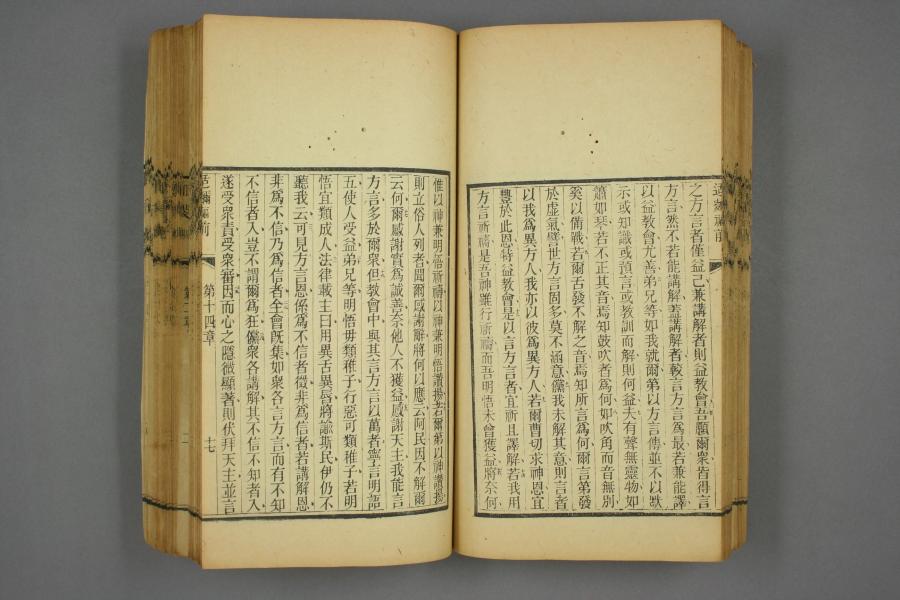 之方言者僅益己兼講解者則益教會吾願爾衆皆得言
方言然不若能講解蓋講解者較言方言爲最若兼能譯
以益教會尤善弟兄等如我就爾第以方言傳並不以默
示或知識或預言或教訓而解則何益夫有聲無靈物如
簫如琴若不正其音焉知鼓吹者爲何如吹角而音無別
奚以備戰若爾舌發不解之音焉知所言爲何爾言第發
於虛氣譬世方言固多莫不涵意儻我未解其意則言者
以我爲異方人我亦以彼爲異方人若爾曹切求神恩宜
豐於此恩特益教會是以言方言者宜祈且譯解若我用
方言祈禱是吾神雖行祈禱而吾明悟未曾獲益將奈何
惟以神兼明悟祈禱以神兼明悟讚揚若爾第以神讚揚
則立俗人列者聞爾感謝辭將何以應云阿民因不解爾
云何爾感謝實爲誠善奈他人不獲益感謝天主我能言
方言多於爾衆但教會中與其言方言以萬者寧言明語
五使人受益弟兄等明悟毋類稚子行惡可類稚子若明
悟宜類成人法律載主曰用異舌異唇將諭斯民伊仍不
聽我云可見方言恩係爲不信者徵非爲信者若講解恩
非爲不信乃爲信者全會既集如衆各言方言而有不知
不信者入豈不謂爾爲狂儻衆各講解其不信不知者入
遂受衆責受衆審因而心之隱微顯著則伏拜天主並言
第十四章
十七